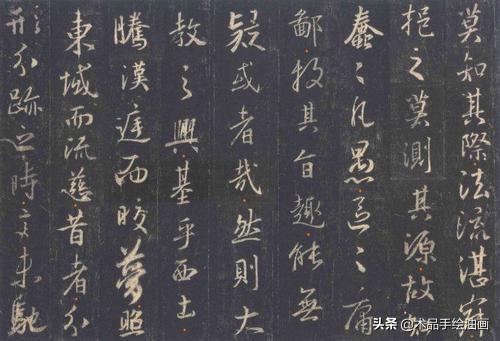 莫知其際法流湛寂
挹之莫測其源故知
蠢々凡愚區々庸
鄙投其旨趣能無
疑或者哉然則大
教之興基乎西土
騰漢庭而皎夢照
東域而流慈昔者分
形分跡之時言未馳
头条 @术品手绘油画